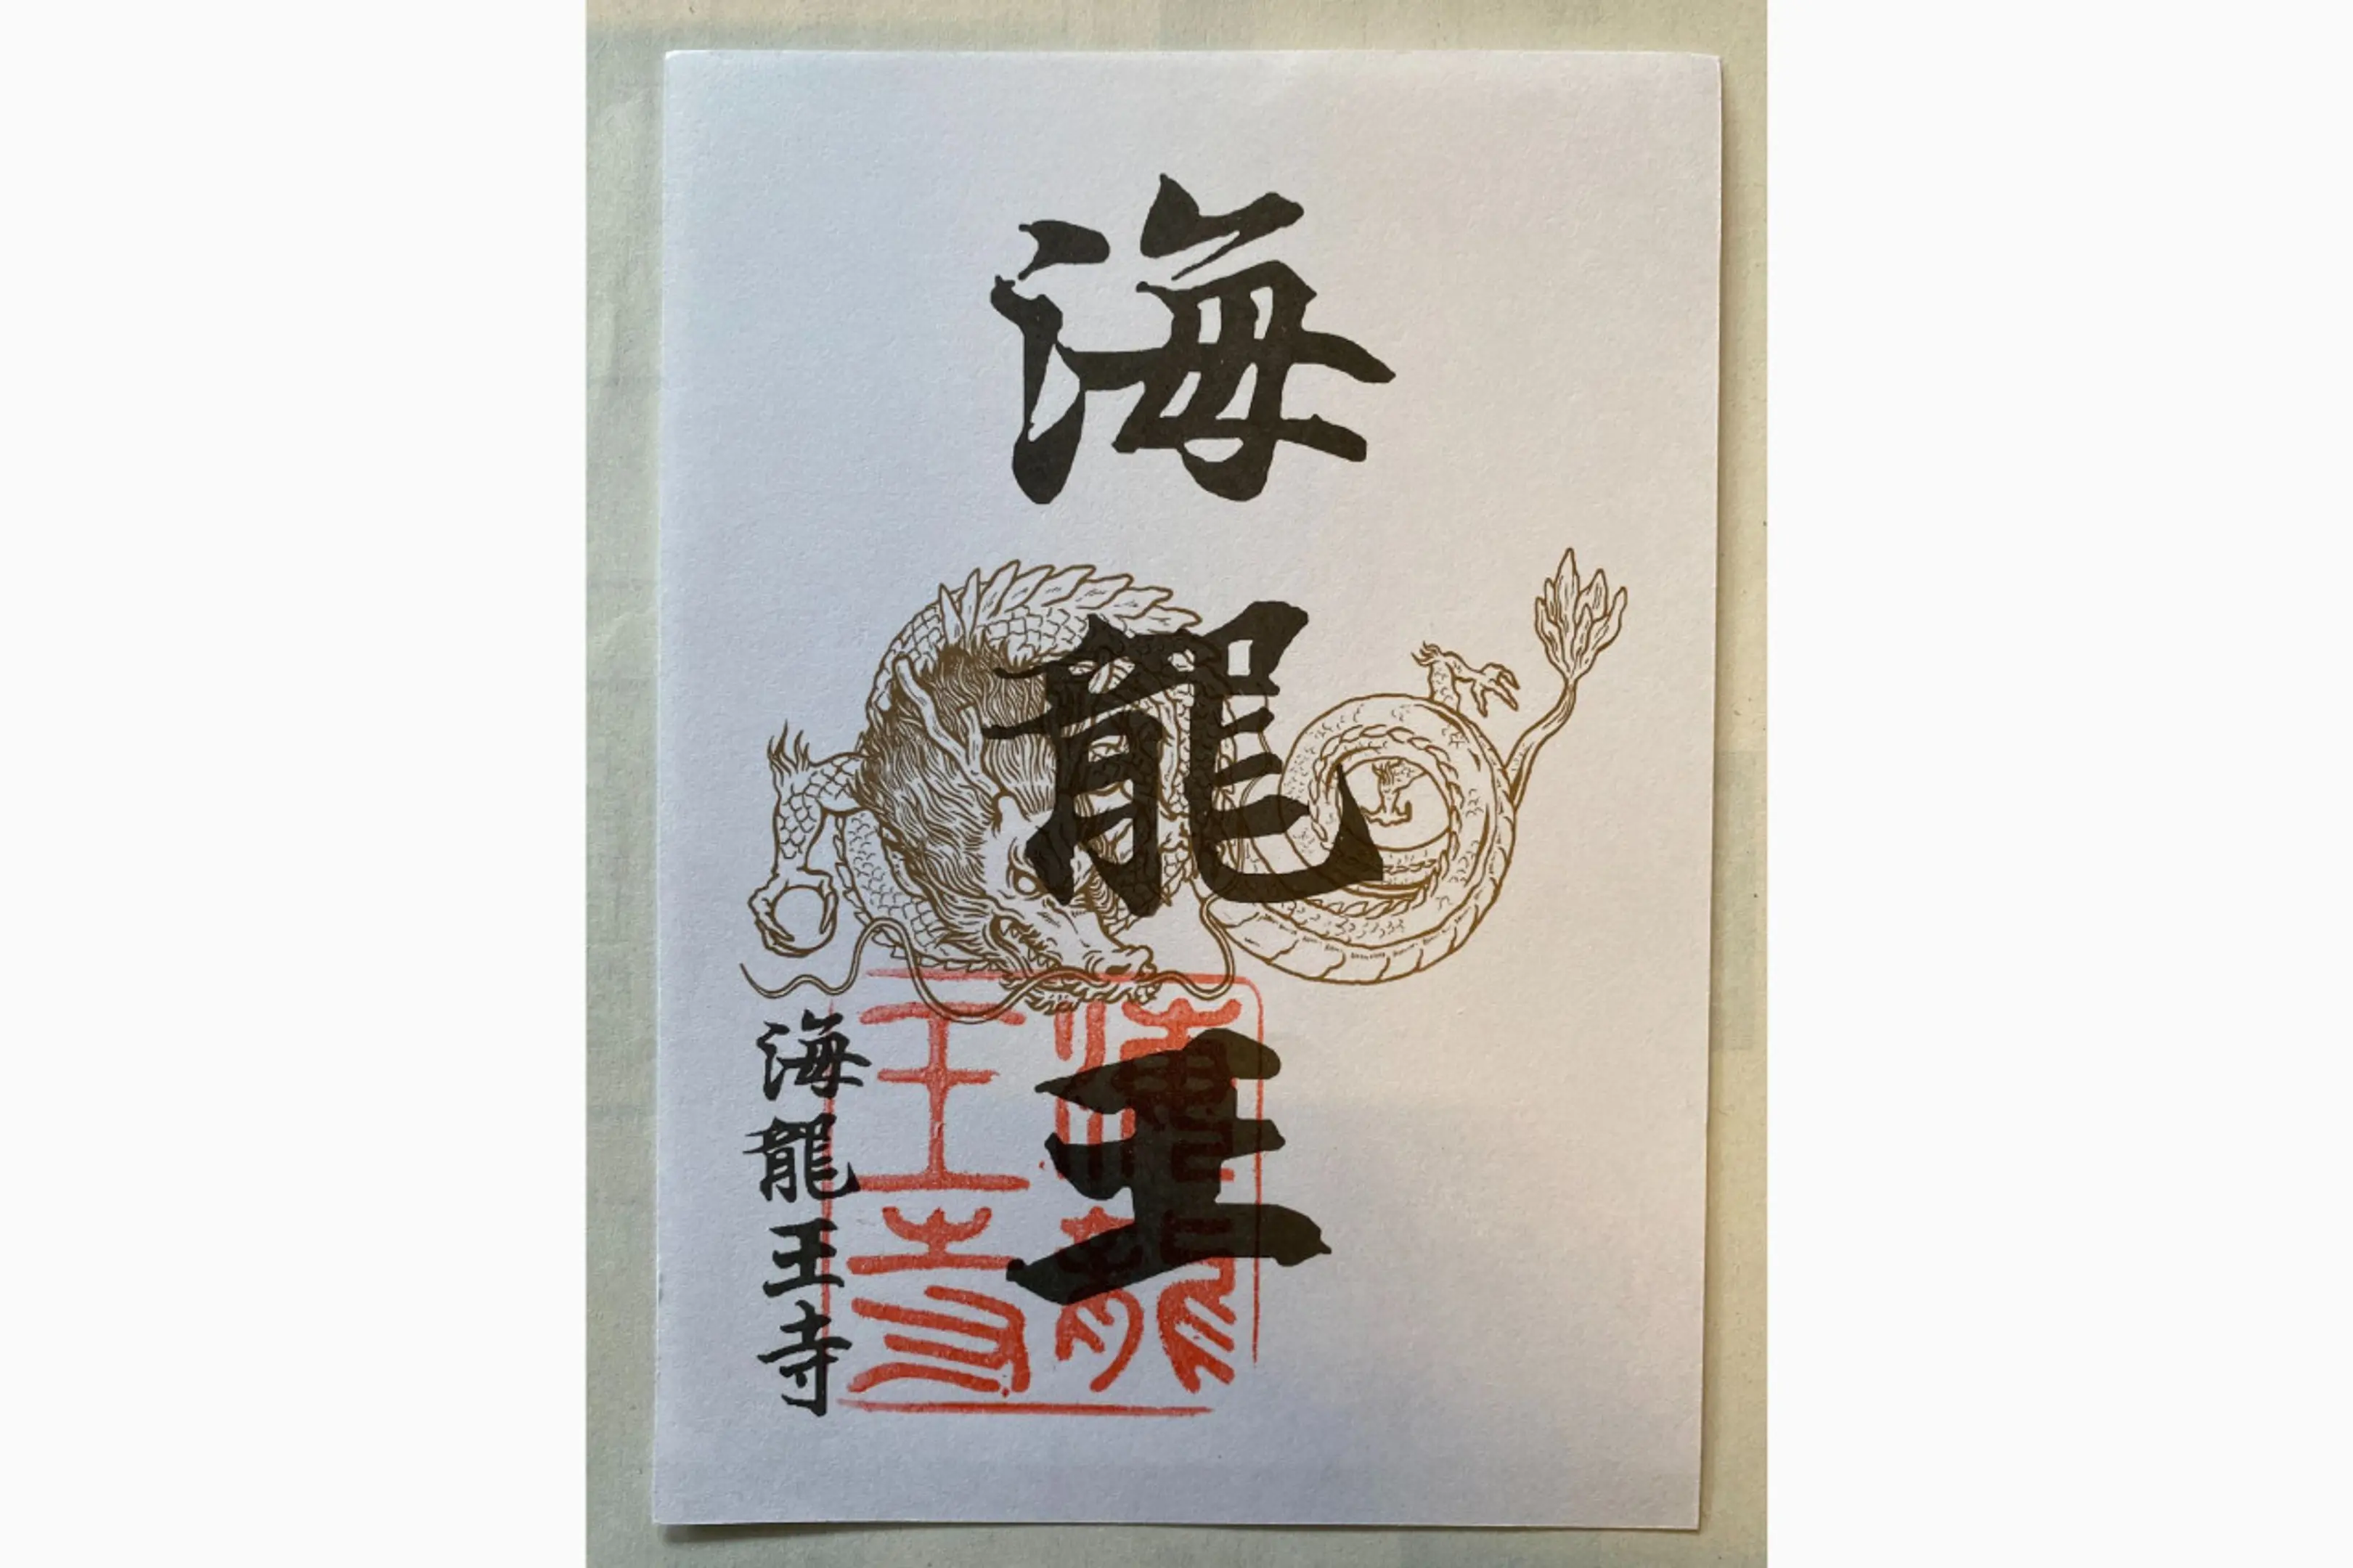 海龍王
海龍王寺
海龍王寺